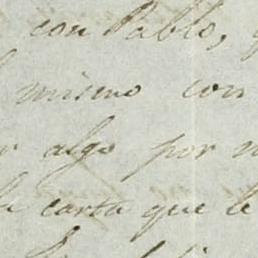 con Pablo,
mismo con
algo por
carta que le